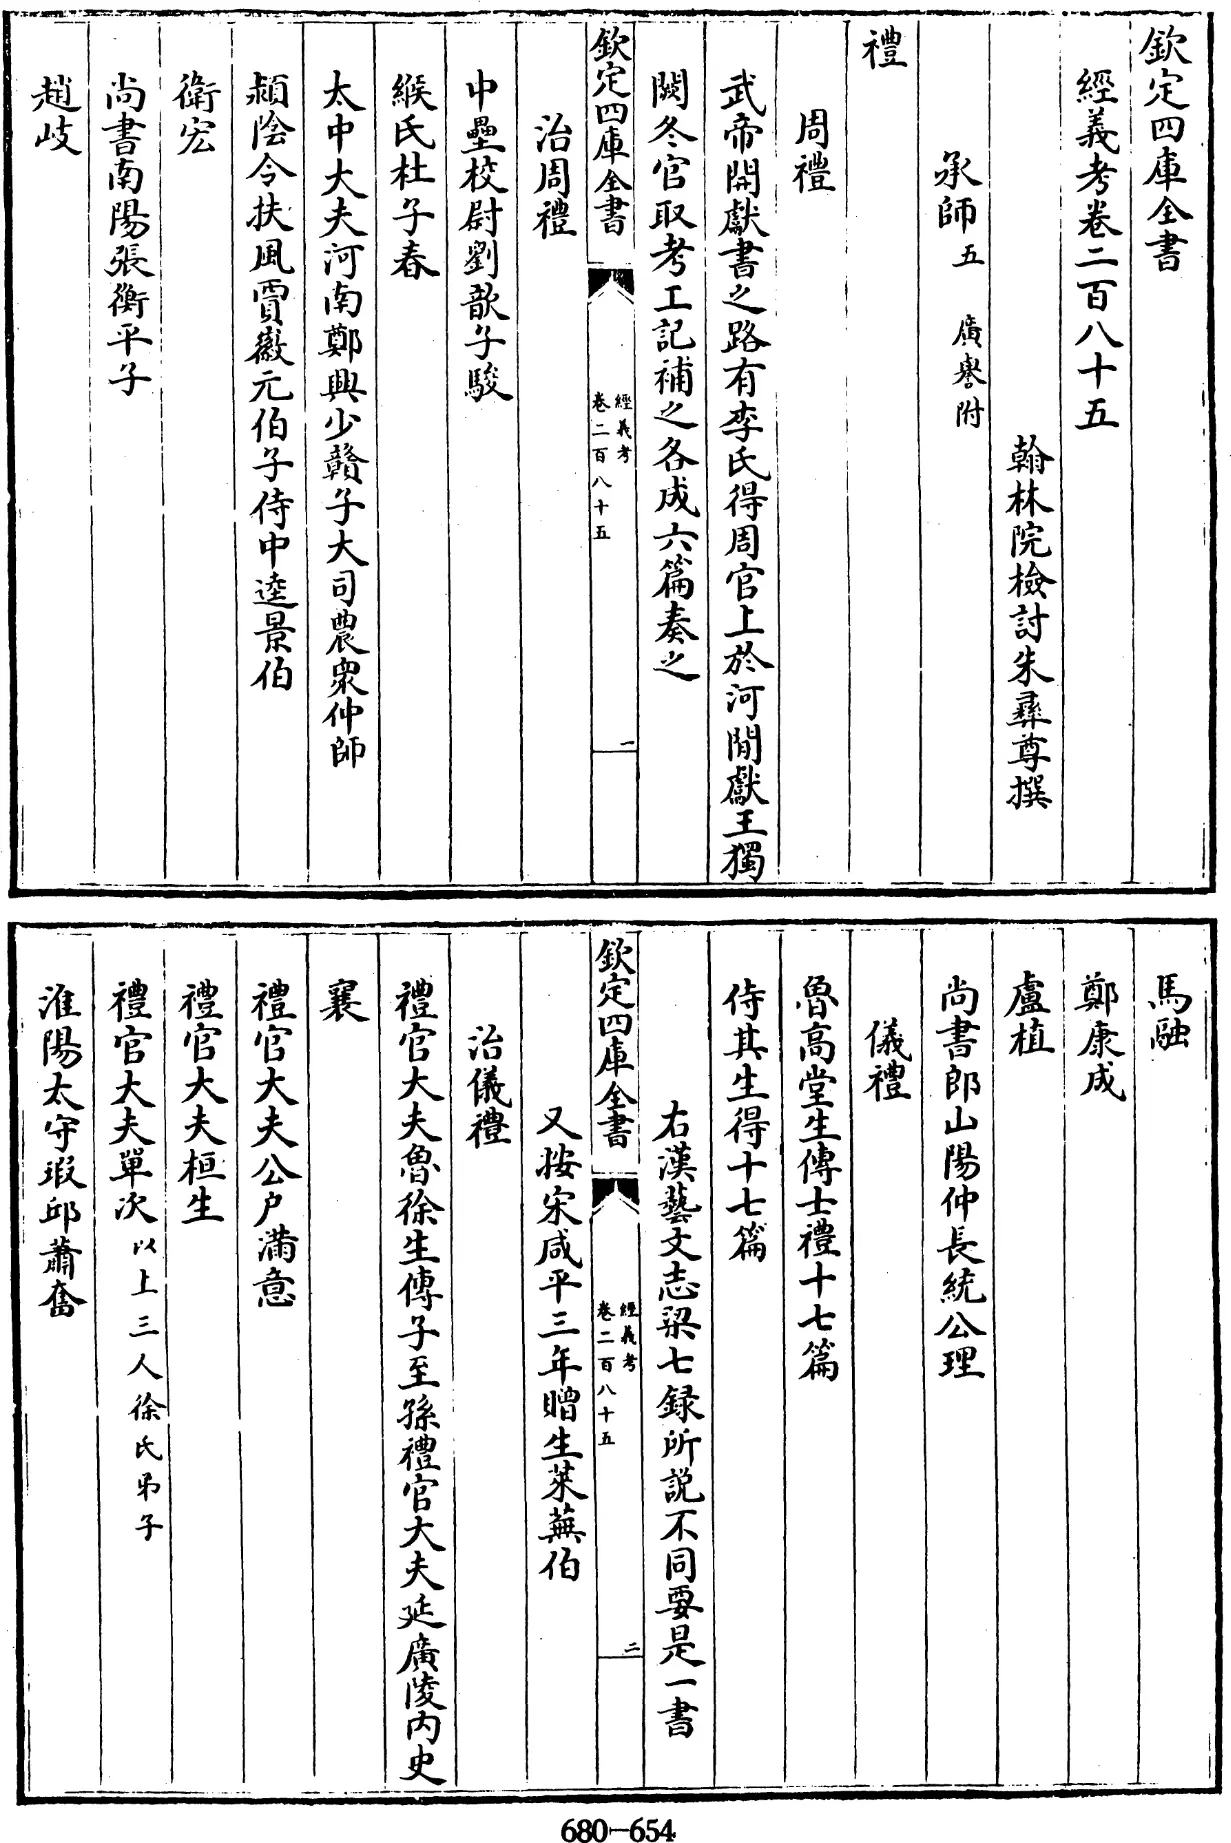 欽定四庫全書
經義考卷二百八十五
翰林院檢討朱彞尊撰
承師五 廣譽附
禮
周禮
武帝開獻書之路有李氏得周官上於河間獻王獨
闕冬官取考工記補之各成六篇奏之
欽定四庫全書
經義考
卷二百八十五
一
治周禮
中壘校尉劉歆子駿
緱氏杜子春
太中大夫河南鄭興少贛子大司農衆仲師
潁陰令扶風賈徽元伯子侍中逵景伯
衛宏
尚書南陽張衡平子
趙岐
馬融
鄭康成
盧植
尚書郎山陽仲長統公理
儀禮
魯高堂生傳士禮十七篇
侍其生得十七篇
右漢藝文志梁七録所説不同要是一書
欽定四庫全書
經義考
卷二百八十五
二
又按宋咸平三年贈生萊蕪伯
治儀禮
禮官大夫魯徐生傳子至孫禮官大夫延廣陵内史
襄
禮官大夫公户滿意
禮官大夫桓生
禮官大夫單次以上三人徐氏弟子
淮陽太守瑕邱蕭奮
680-654